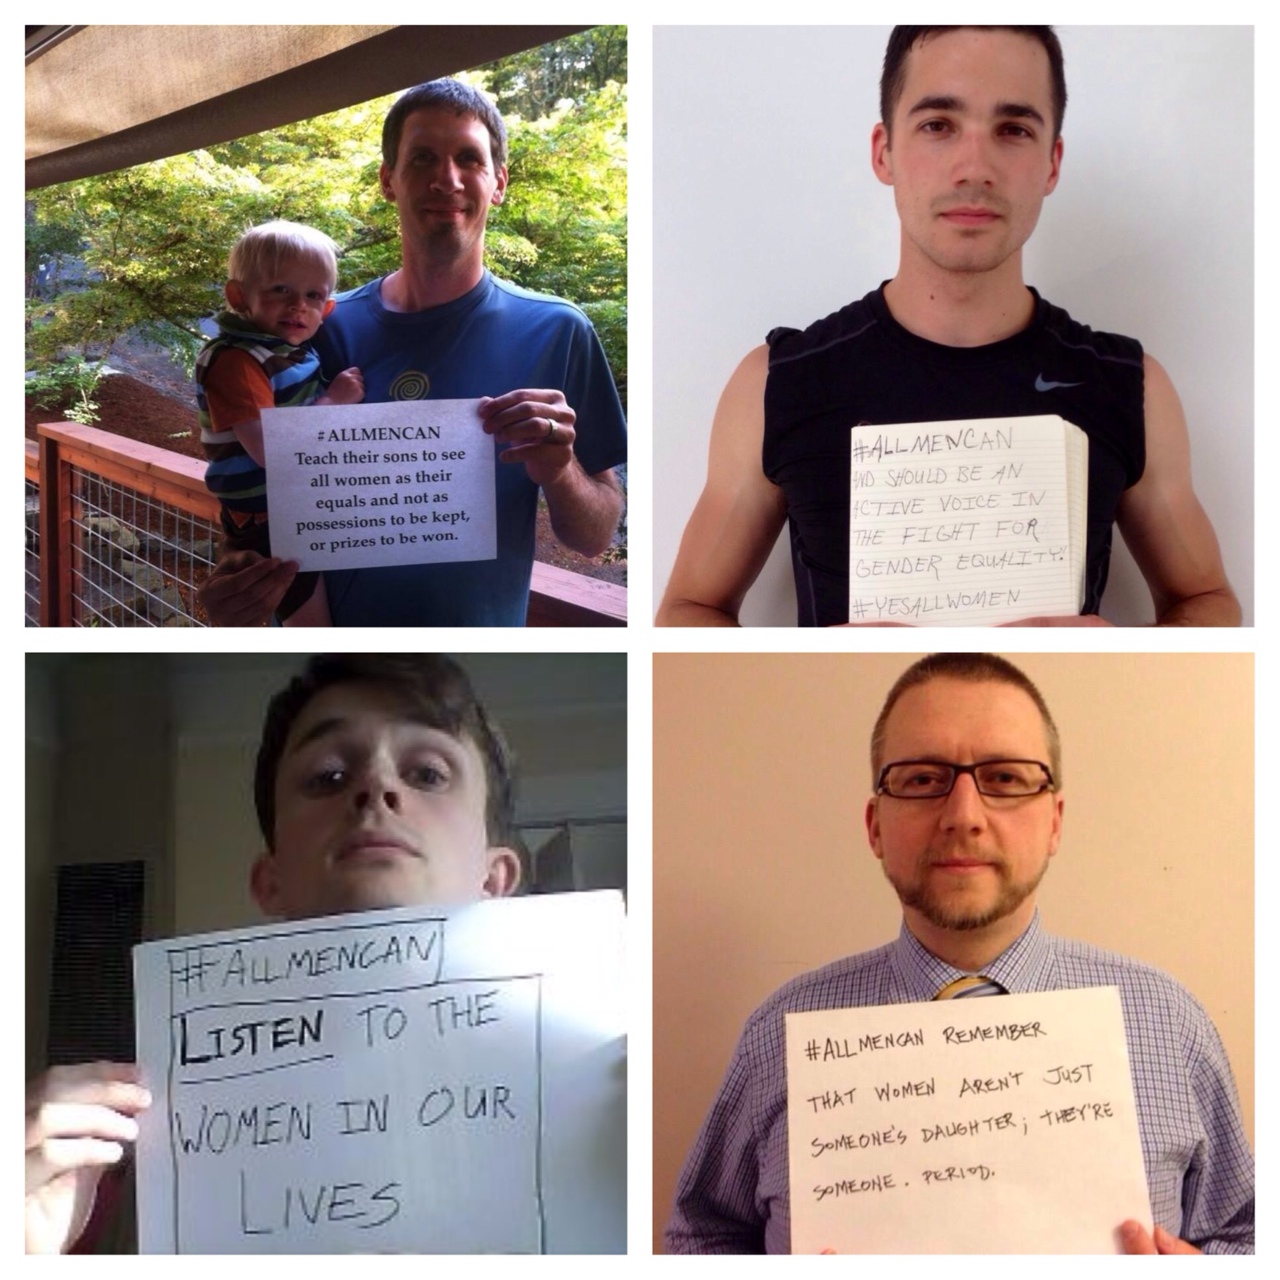 #ALLMENCAN
Teach their sons to see
all women as their
equals and not as
possessions to be kept,
or prizes to be won.
#ALLMENCAN
ND SHOULD BE AN
CTIVE VOICE IN
THE FIGHT FOR
GENDER EQUALITY!
#YESALLWOMEN
#ALLMENCAN
LISTEN TO THE
WOMEN IN OUR
LIVES
#ALLMENCAN REMEMBER
THAT WOMEN AREN'T JUST
SOMEONE'S DAUGHTER; THEY'RE
SOMEONE. PERIOD.